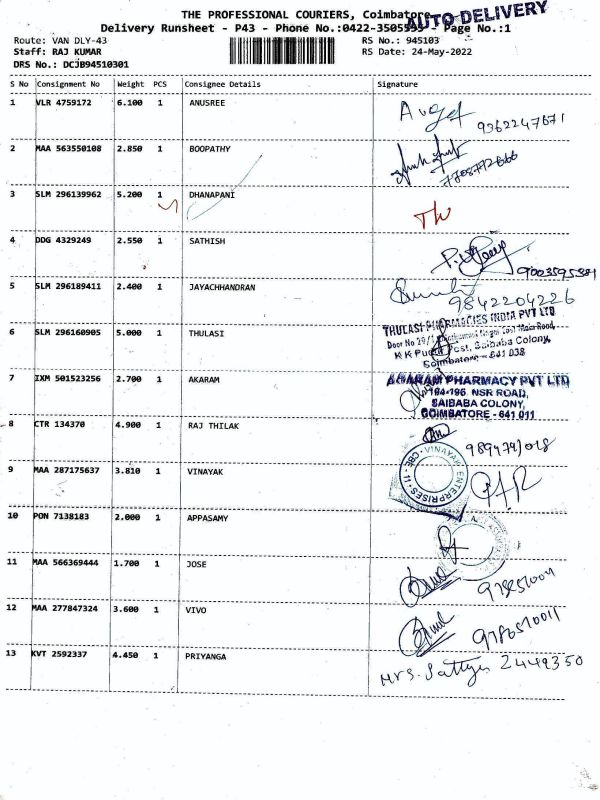 THE PROFESSIONAL COURIERS, Coimbatore
AUTO DELIVERY
Delivery Runsheet - P43 - Phone No.:0422-3505595- Page No.:1
Route: VAN DLY-43 RS No.: 945103
Staff: RAJ KUMAR RS Date: 24-May-2022
DRS No.: DCJB94510301
S No Consignment No Weight PCS Consignee Details Signature
1 VLR 4759172 6.100 1 ANUSREE
9362247671
2 MAA 563550108 2.850 1 BOOPATHY
3 SLM 296139962 5.200 1 DHANAPANI
4 DDG 4329249 2.550 1 SATHISH
5 SLM 296189411 2.400 1 JAYACHHANDRAN
9842204226
6 SLM 296160905 5.000 1 THULASI
THULASI PHARMACIES INDIA PVT LTD
Post, Saibaba Colony,
Coimbatore - 641 038
7 IXM 501523256 2.700 1 AKARAM
PHARMACY PVT LTD
194-196 NSR ROAD,
SAIBABA COLONY,
COIMBATORE - 641 011
8 CTR 134370 4.900 1 RAJ THILAK
9 MAA 287175637 3.810 1 VINAYAK
VINAYAK ENTERPRISES CBE - 11
10 PON 7138183 2.000 1 APPASAMY
11 MAA 566369444 1.700 1 JOSE
12 MAA 277847324 3.600 1 VIVO
13 KVT 2592337 4.450 1 PRIYANGA
Mrs. 2449350